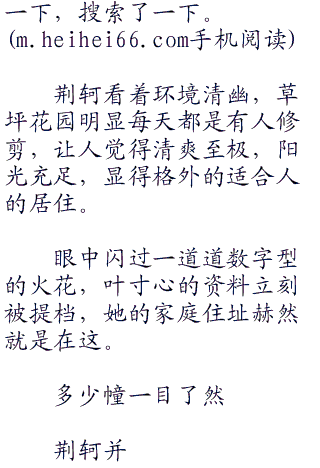 一下，搜索了一下。
(m.heihei66.com手机阅读)
荆轲看着环境清幽，草
坪花园明显每天都是有人修
剪，让人觉得清爽至极，阳
光充足，显得格外的适合人
的居住。
眼中闪过一道道数字型
的火花，叶寸心的资料立刻
被提档，她的家庭住址赫然
就是在这。
多少幢一目了然
荆轲并